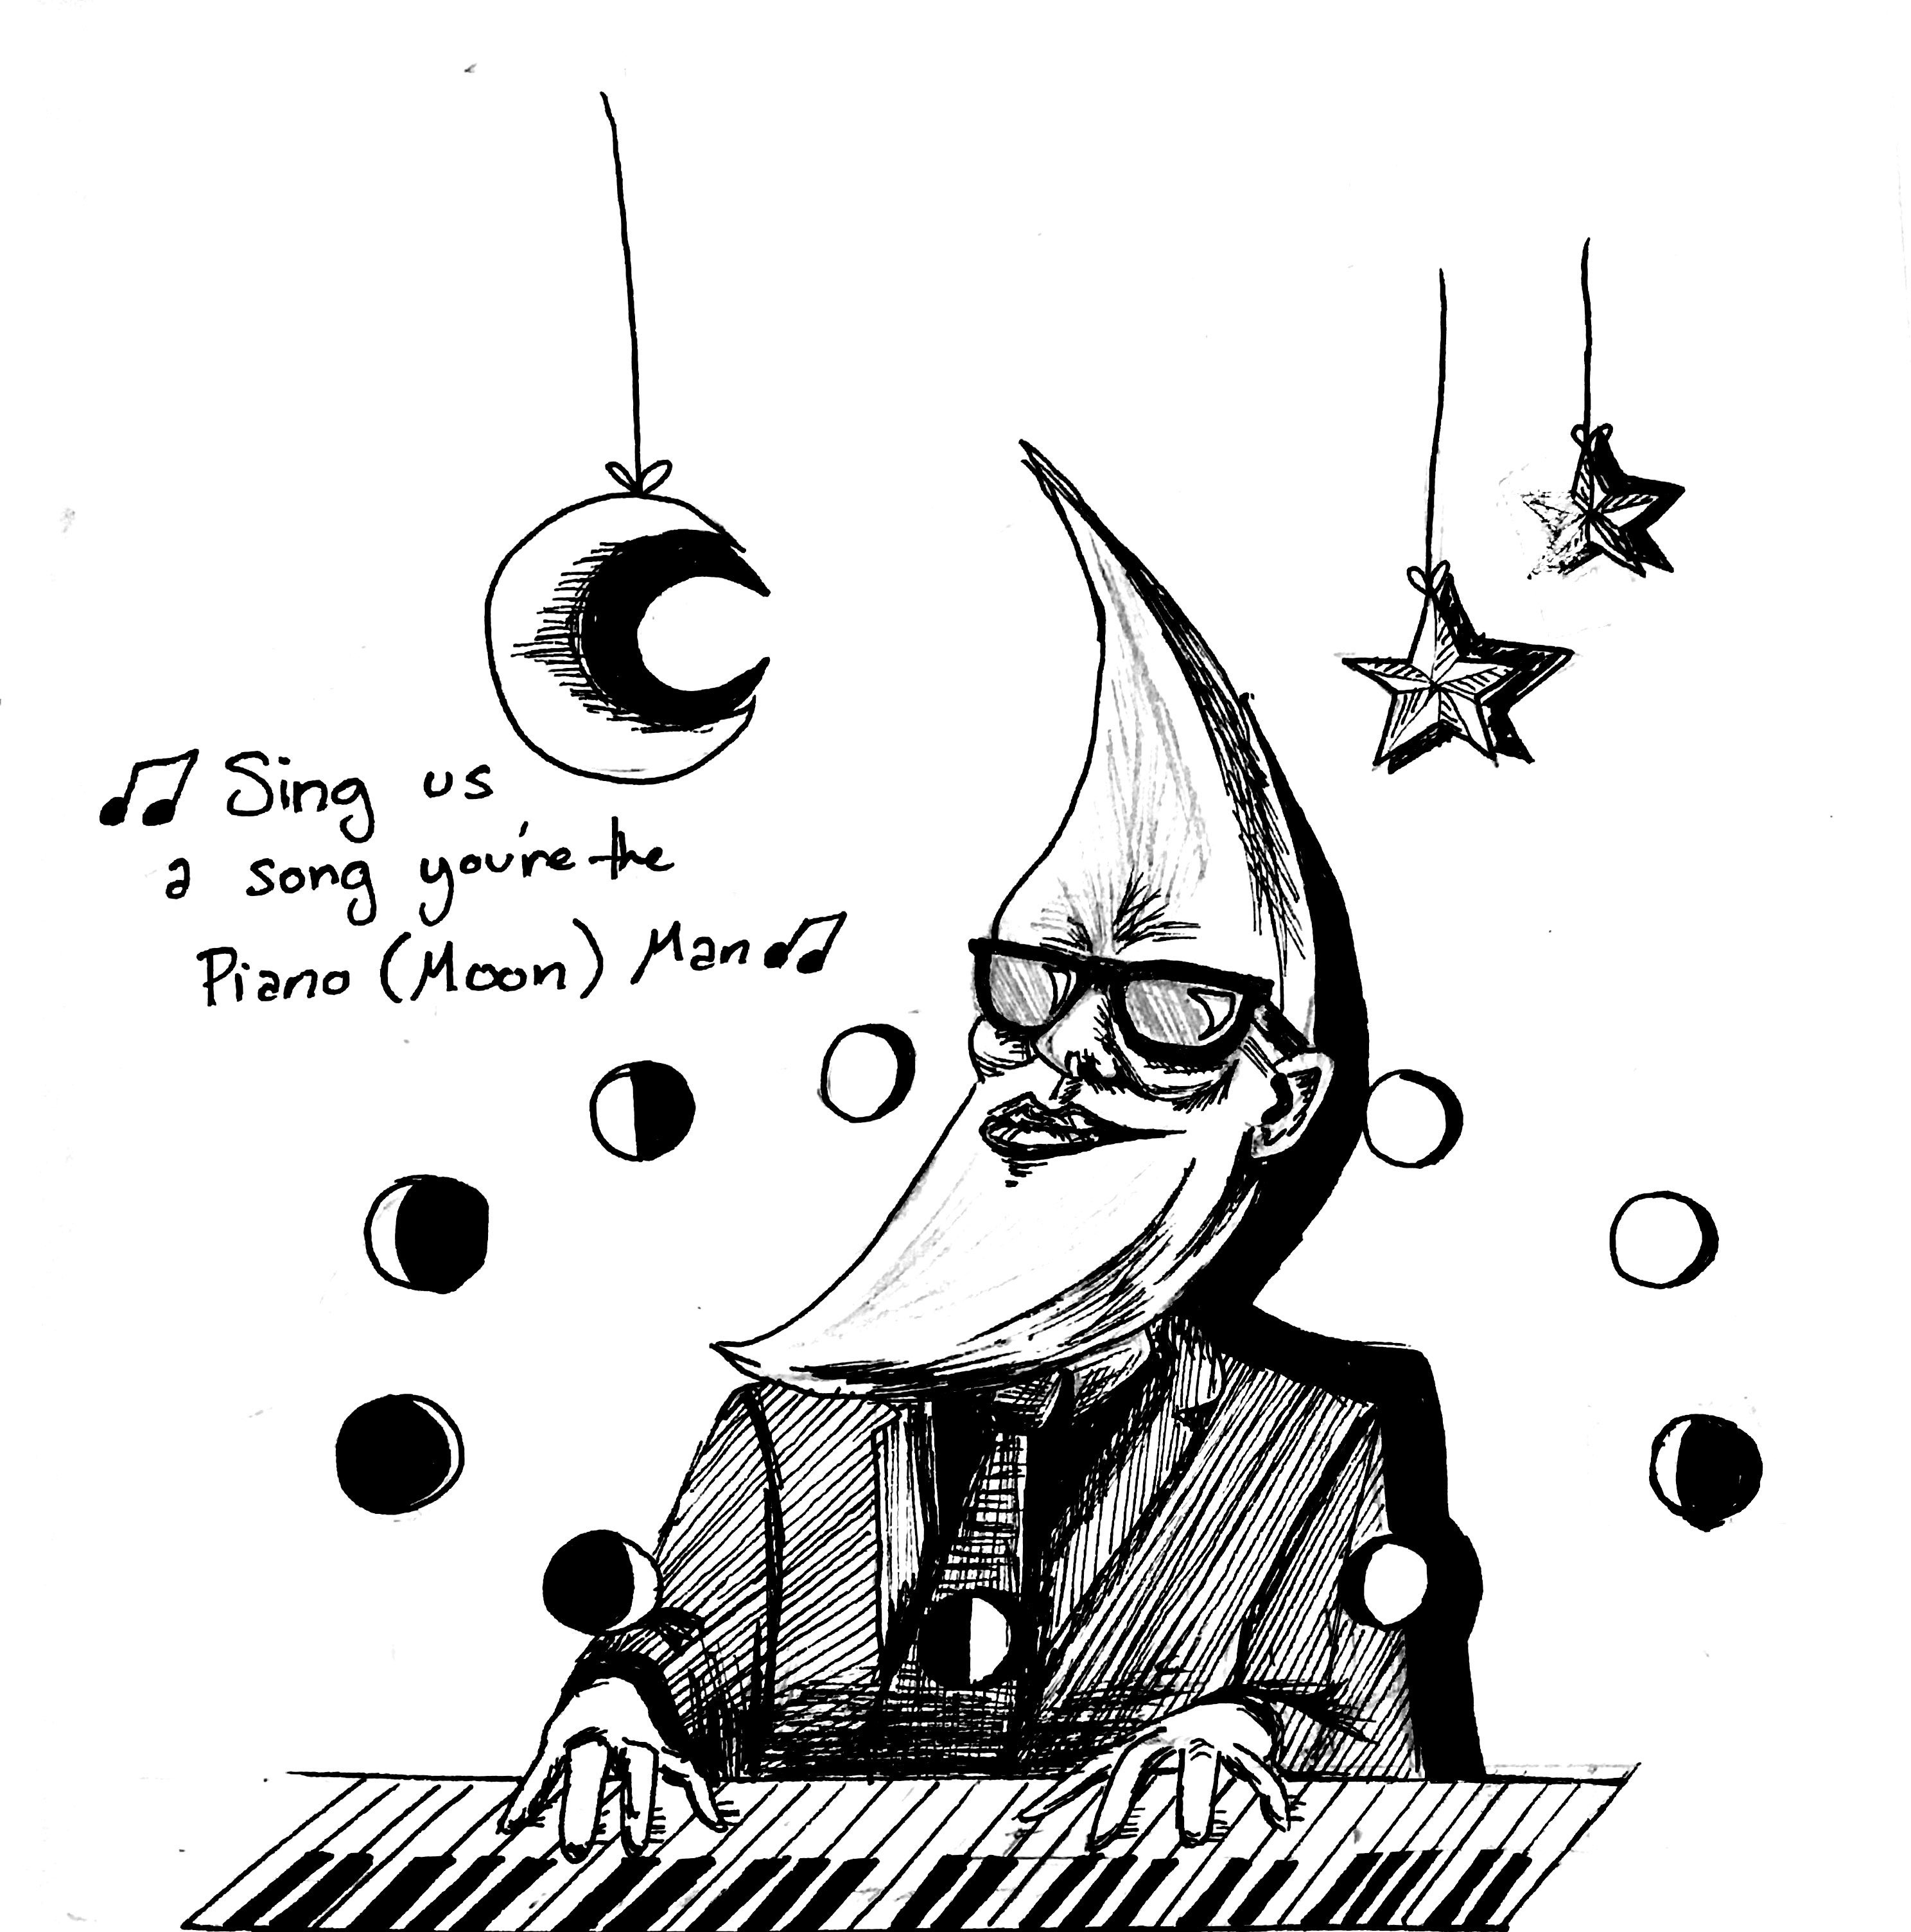 ♫ Sing us
a song you're the
Piano (Moon) Man ♫